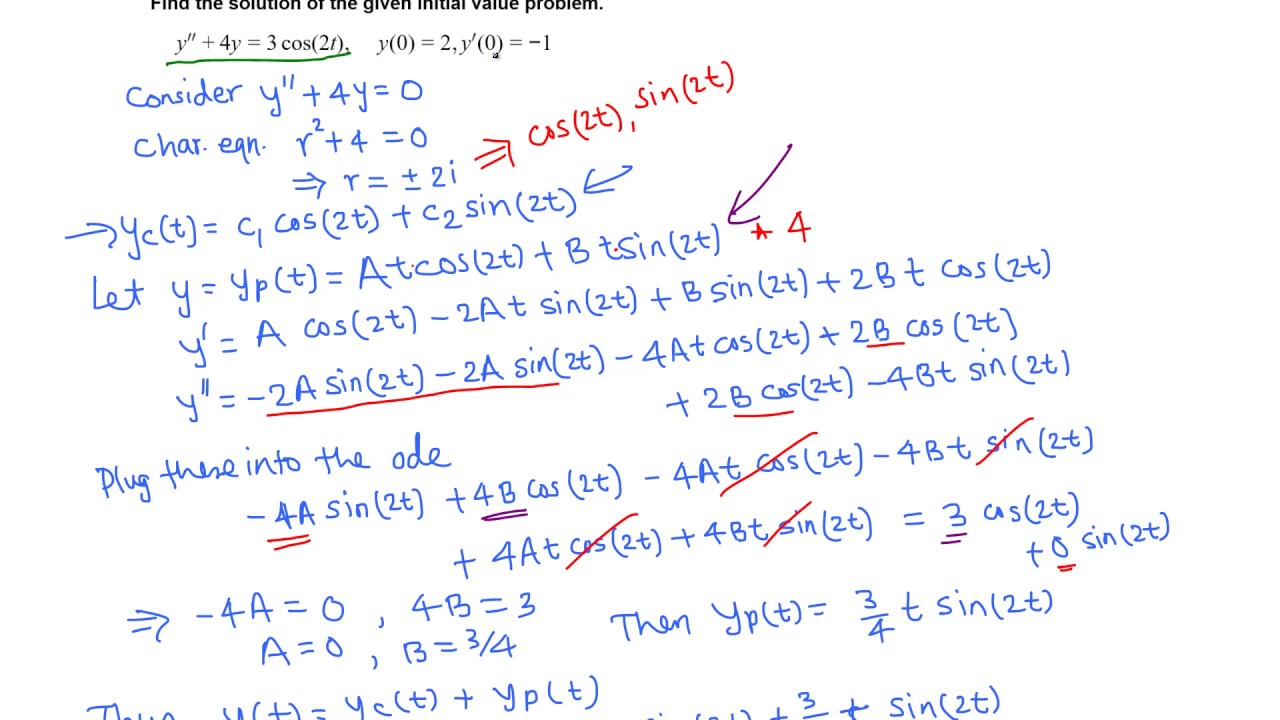 Find the solution of the given initial value problem.
y″ + 4y = 3 cos(2t),   y(0) = 2, y′(0) = −1
Consider y″ + 4y = 0
Char. eqn. r² + 4 = 0 ⇒ cos(2t), sin(2t)
⇒ r = ± 2i
→ yc(t) = c₁ cos(2t) + c₂ sin(2t) ←
Let y = yp(t) = At cos(2t) + B t sin(2t) * 4
y′ = A cos(2t) − 2At sin(2t) + B sin(2t) + 2Bt cos(2t)
y″ = −2A sin(2t) − 2A sin(2t) − 4At cos(2t) + 2B cos(2t)
+ 2B cos(2t) − 4Bt sin(2t)
Plug these into the ode
−4A sin(2t) + 4B cos(2t) − 4At cos(2t) − 4Bt sin(2t)
+ 4At cos(2t) + 4Bt sin(2t) = 3 cos(2t)
+ 0 sin(2t)
⇒ −4A = 0 , 4B = 3 Then yp(t) = 3/4 t sin(2t)
A = 0 , B = 3/4
y(t) = yc(t) + yp(t)
sin(2t) + 3 t sin(2t)